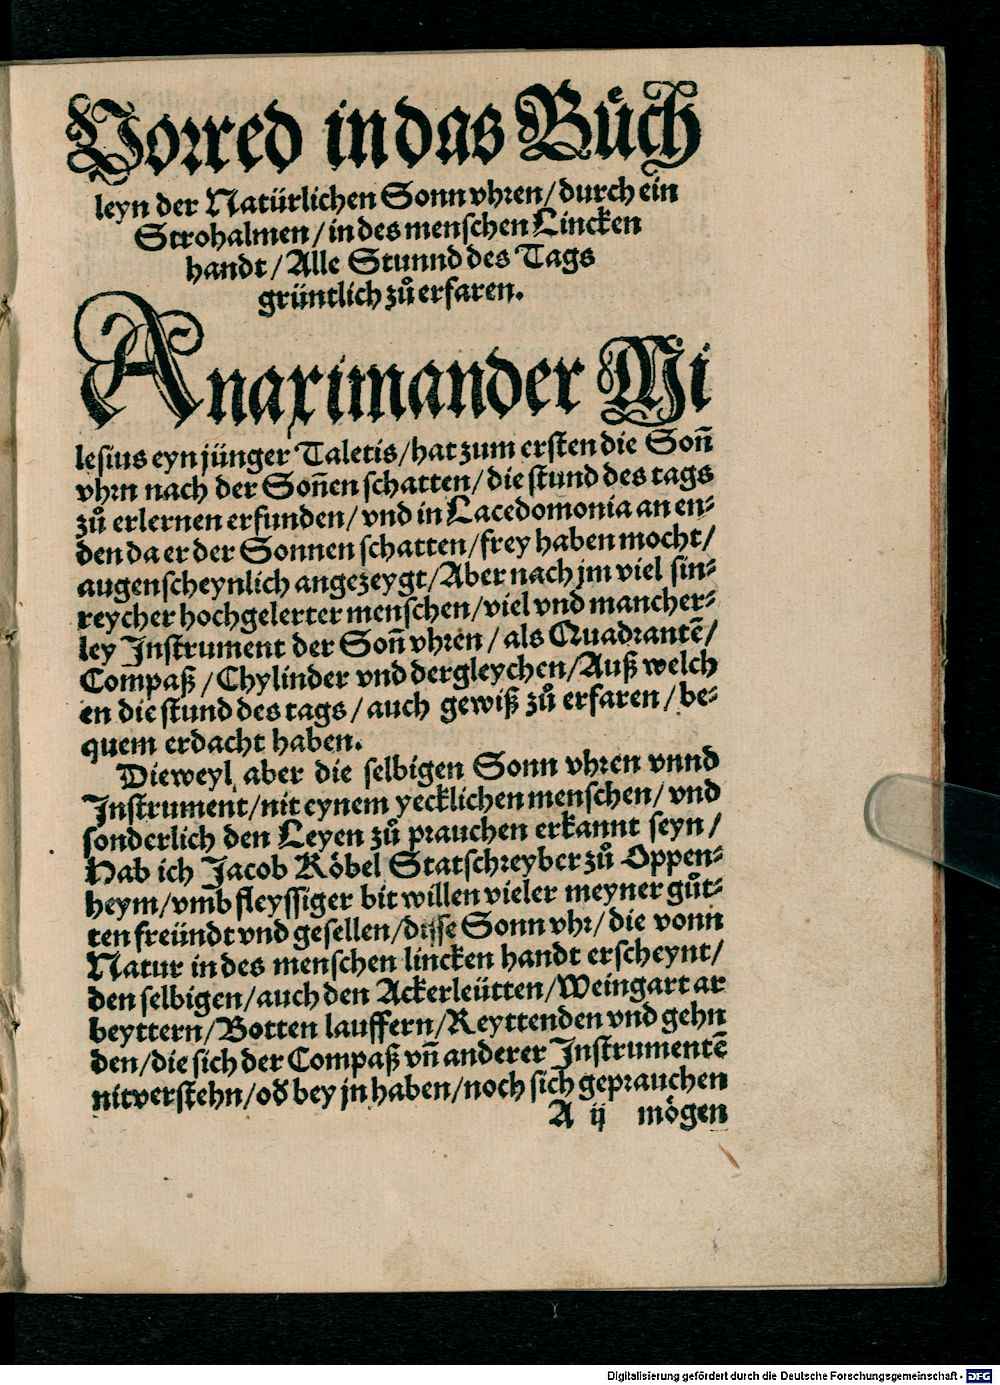 Vorred in das Bůch
leyn der Natürlichen Sonn vhren/ durch ein
Strohalmen/ in des menschen Lincken
handt/ Alle Stunnd des Tags
grüntlich zů erfaren.
Anaximander Mi
lesius eyn jünger Taletis/ hat zum ersten die Son̄
vhrn nach der Son̄en schatten/ die stund des tags
zů erlernen erfunden/ vnd in Lacedomonia an en⸗
den da er der Sonnen schatten/ frey haben mocht/
augenscheynlich angezeygt/ Aber nach jm viel sin⸗
reycher hochgelerter menschen/ viel vnd mancher⸗
ley Instrument der Son̄ vhren/ als Quadrantē/
Compaß/ Chylinder vnd dergleychen/ Auß welch
en die stund des tags/ auch gewiß zů erfaren/ be⸗
quem erdacht haben.
Dieweyl aber die selbigen Sonn vhren vnnd
Instrument/ nit eynem yecklichen menschen/ vnd
sonderlich den Leyen zů prauchen erkannt seyn/
Hab ich Jacob Köbel Statschreyber zů Oppen⸗
heym/ vmb fleyssiger bit willen vieler meyner gůt⸗
ten freündt vnd gesellen/ disse Sonn vhr/ die vonn
Natur in des menschen lincken handt erscheynt/
den selbigen/ auch den Ackerleütten/ Weingart ar
beyttern/ Botten lauffern/ Reyttenden vnd gehn
den/ die sich der Compaß vn̄ anderer Instrumentē
nit verstehn/ od̕ bey jn haben/ noch sich geprauchen
A ij mögen
Digitalisierung gefördert durch die Deutsche Forschungsgemeinschaft - DFG